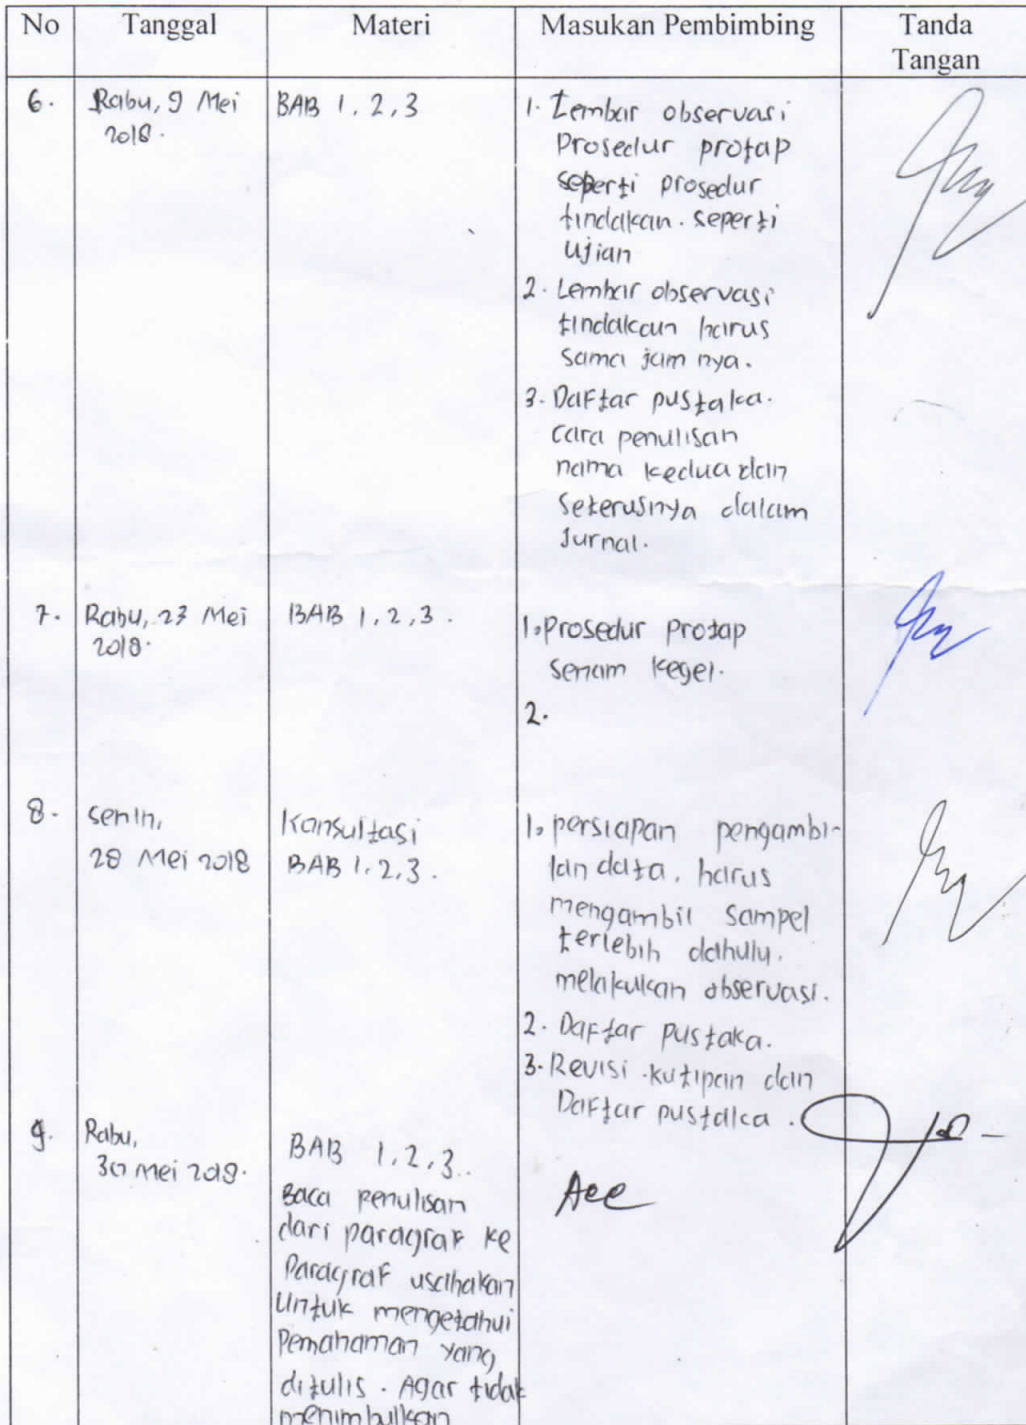 No Tanggal Materi Masukan Pembimbing Tanda Tangan
6. Rabu, 9 Mei 2018.
BAB 1, 2, 3
1. Lembar observasi
Prosedur protap
seperti prosedur
tindakan. seperti
ujian
2. Lembar observasi
tindakan harus
sama jam nya.
3. Daftar pustaka.
cara penulisan
nama kedua dan
seterusnya dalam
Jurnal.
7. Rabu, 23 Mei
2018.
BAB 1, 2, 3.
1. Prosedur Protap
senam kegel.
2.
8. senin,
28 Mei 2018
Konsultasi
BAB 1, 2, 3.
1. persiapan pengambi-
lan data. harus
mengambil sampel
terlebih dahulu.
melakukan observasi.
2. Daftar pustaka.
3. Revisi kutipan dan
Daftar pustaka.
9. Rabu,
30 Mei 2018.
BAB 1, 2, 3..
Baca penulisan
dari paragraf ke
Paragraf usahakan
Untuk mengetahui
Pemahaman yang
ditulis. Agar tidak
menimbulkan
Acc